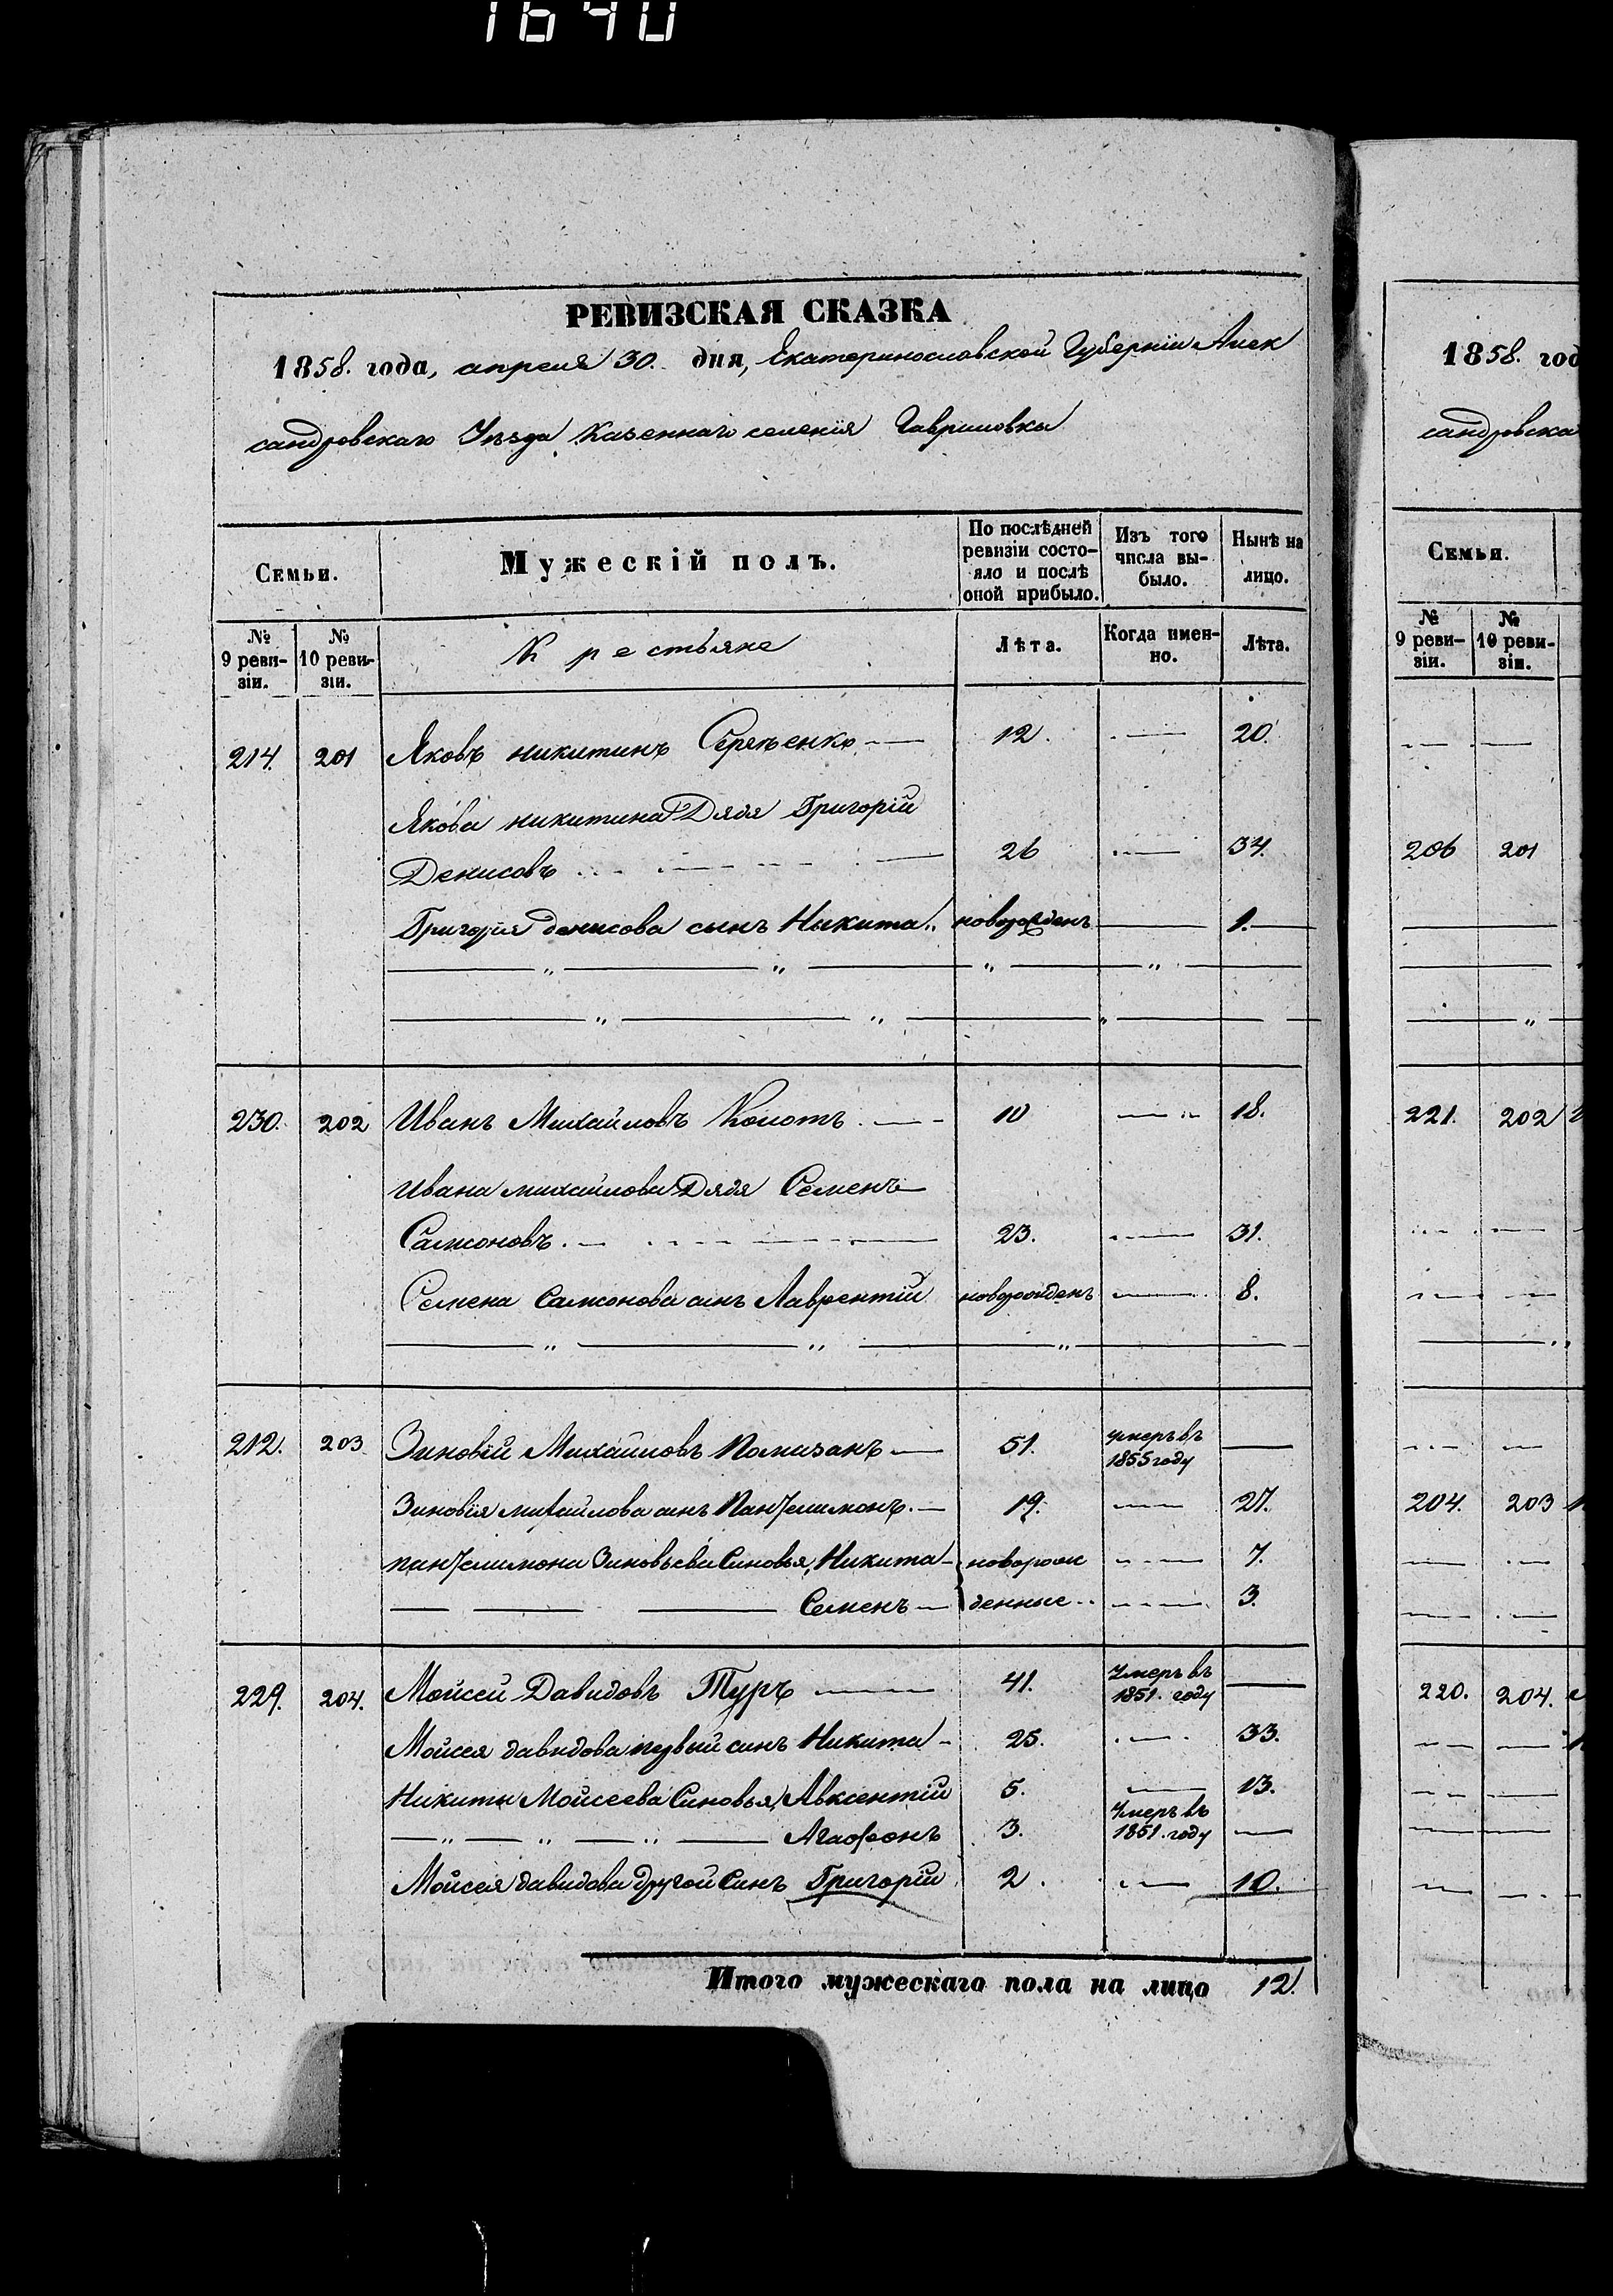 1640
РЕВИЗСКАЯ СКАЗКА
1858. года, апреля 30. дня, Екатеринославской Губерніи Алек
сандровскаго Уѣзда Казеннаго селенія Гавриловки
Семьи. Мужескій полъ. По послѣдней ревизіи состояло и послѣ оной прибыло. Изъ того числа выбыло. Нынѣ на лицо.
№ 9 ревизіи. № 10 ревизіи. Крестьяне Лѣта. Когда именно. Лѣта.
214. 201 Яковъ никитинъ 12. 20.
Якова никитина Дядя Григорій
Денисовъ 26 34.
Григорія денисова сынъ Никита новорожденъ 1.
230. 202 Иванъ Михайловъ Колотъ 10 18.
Ивана михайлова Дядя Семенъ
Самсоновъ 23. 31.
Семена Самсонова синъ Лаврентій новорожденъ 8.
212. 203 Зиновій Михайловъ Помизанъ 51. умеръ въ 1855 году
Зиновія михайлова синъ Пантелимонъ 19. 27.
пантелимона Зиновьева Синовья, Никита новорож 7.
Семенъ денные 3.
229. 204. Мойсей Давидовъ Туръ 41. Умеръ въ 1851. году
Мойсея давидова первый синъ Никита 25. 33.
Никиты Мойсеева Синовья, Авксентій 5. 13.
Агафонъ 3. Умеръ въ 1851. году
Мойсея давидова другой Синъ Григорій 2. 10.
Итого мужескаго пола на лицо 12.
1858. год
сандровска
Семьи.
№ 9 ревизіи. № 10 ревизіи.
206 201
221. 202
204. 203
220. 204.